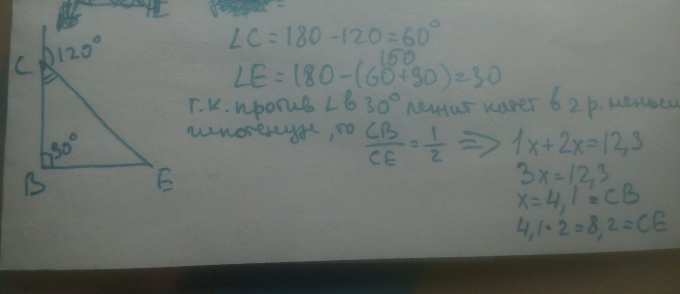 ∠C=180-120=60°
150
∠E=180-(60+90)=30
т.к. против ∠ в 30° лежит катет в 2 р. меньше
гипотенузе, то CB/CE=1/2 => 1x+2x=12,3
3x=12,3
x=4,1=CB
4,1·2=8,2=CE
C
120°
90°
B
E